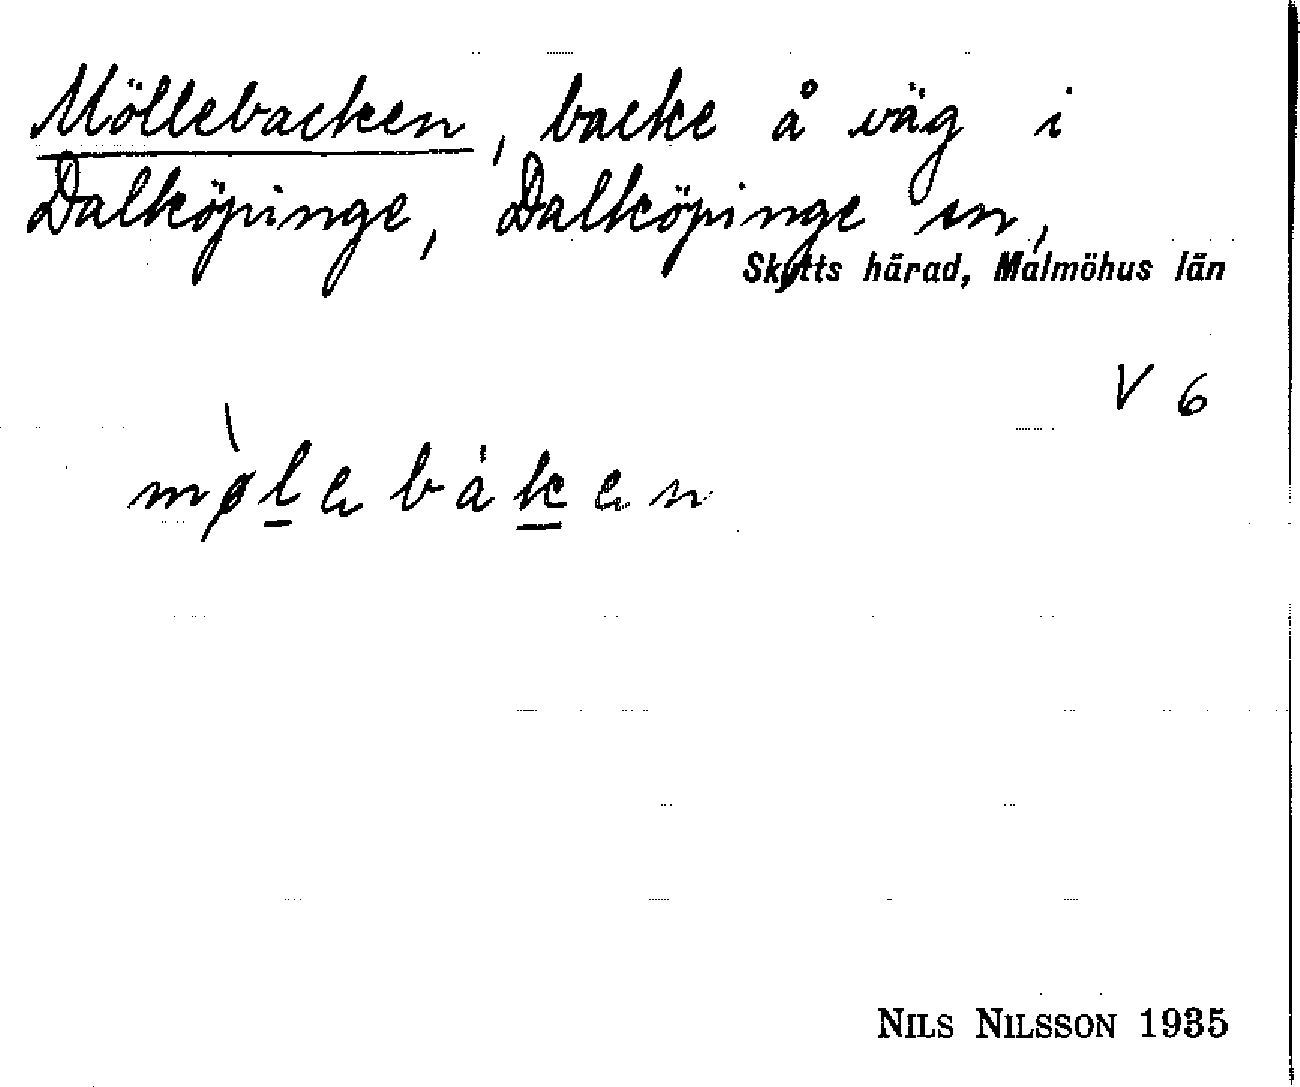 Möllebacken, backe å väg i
Dalköpinge, Dalköpinge sn,
Skytts härad, Malmöhus län
V 6
mø̀lebáken
NILS NILSSON 1935